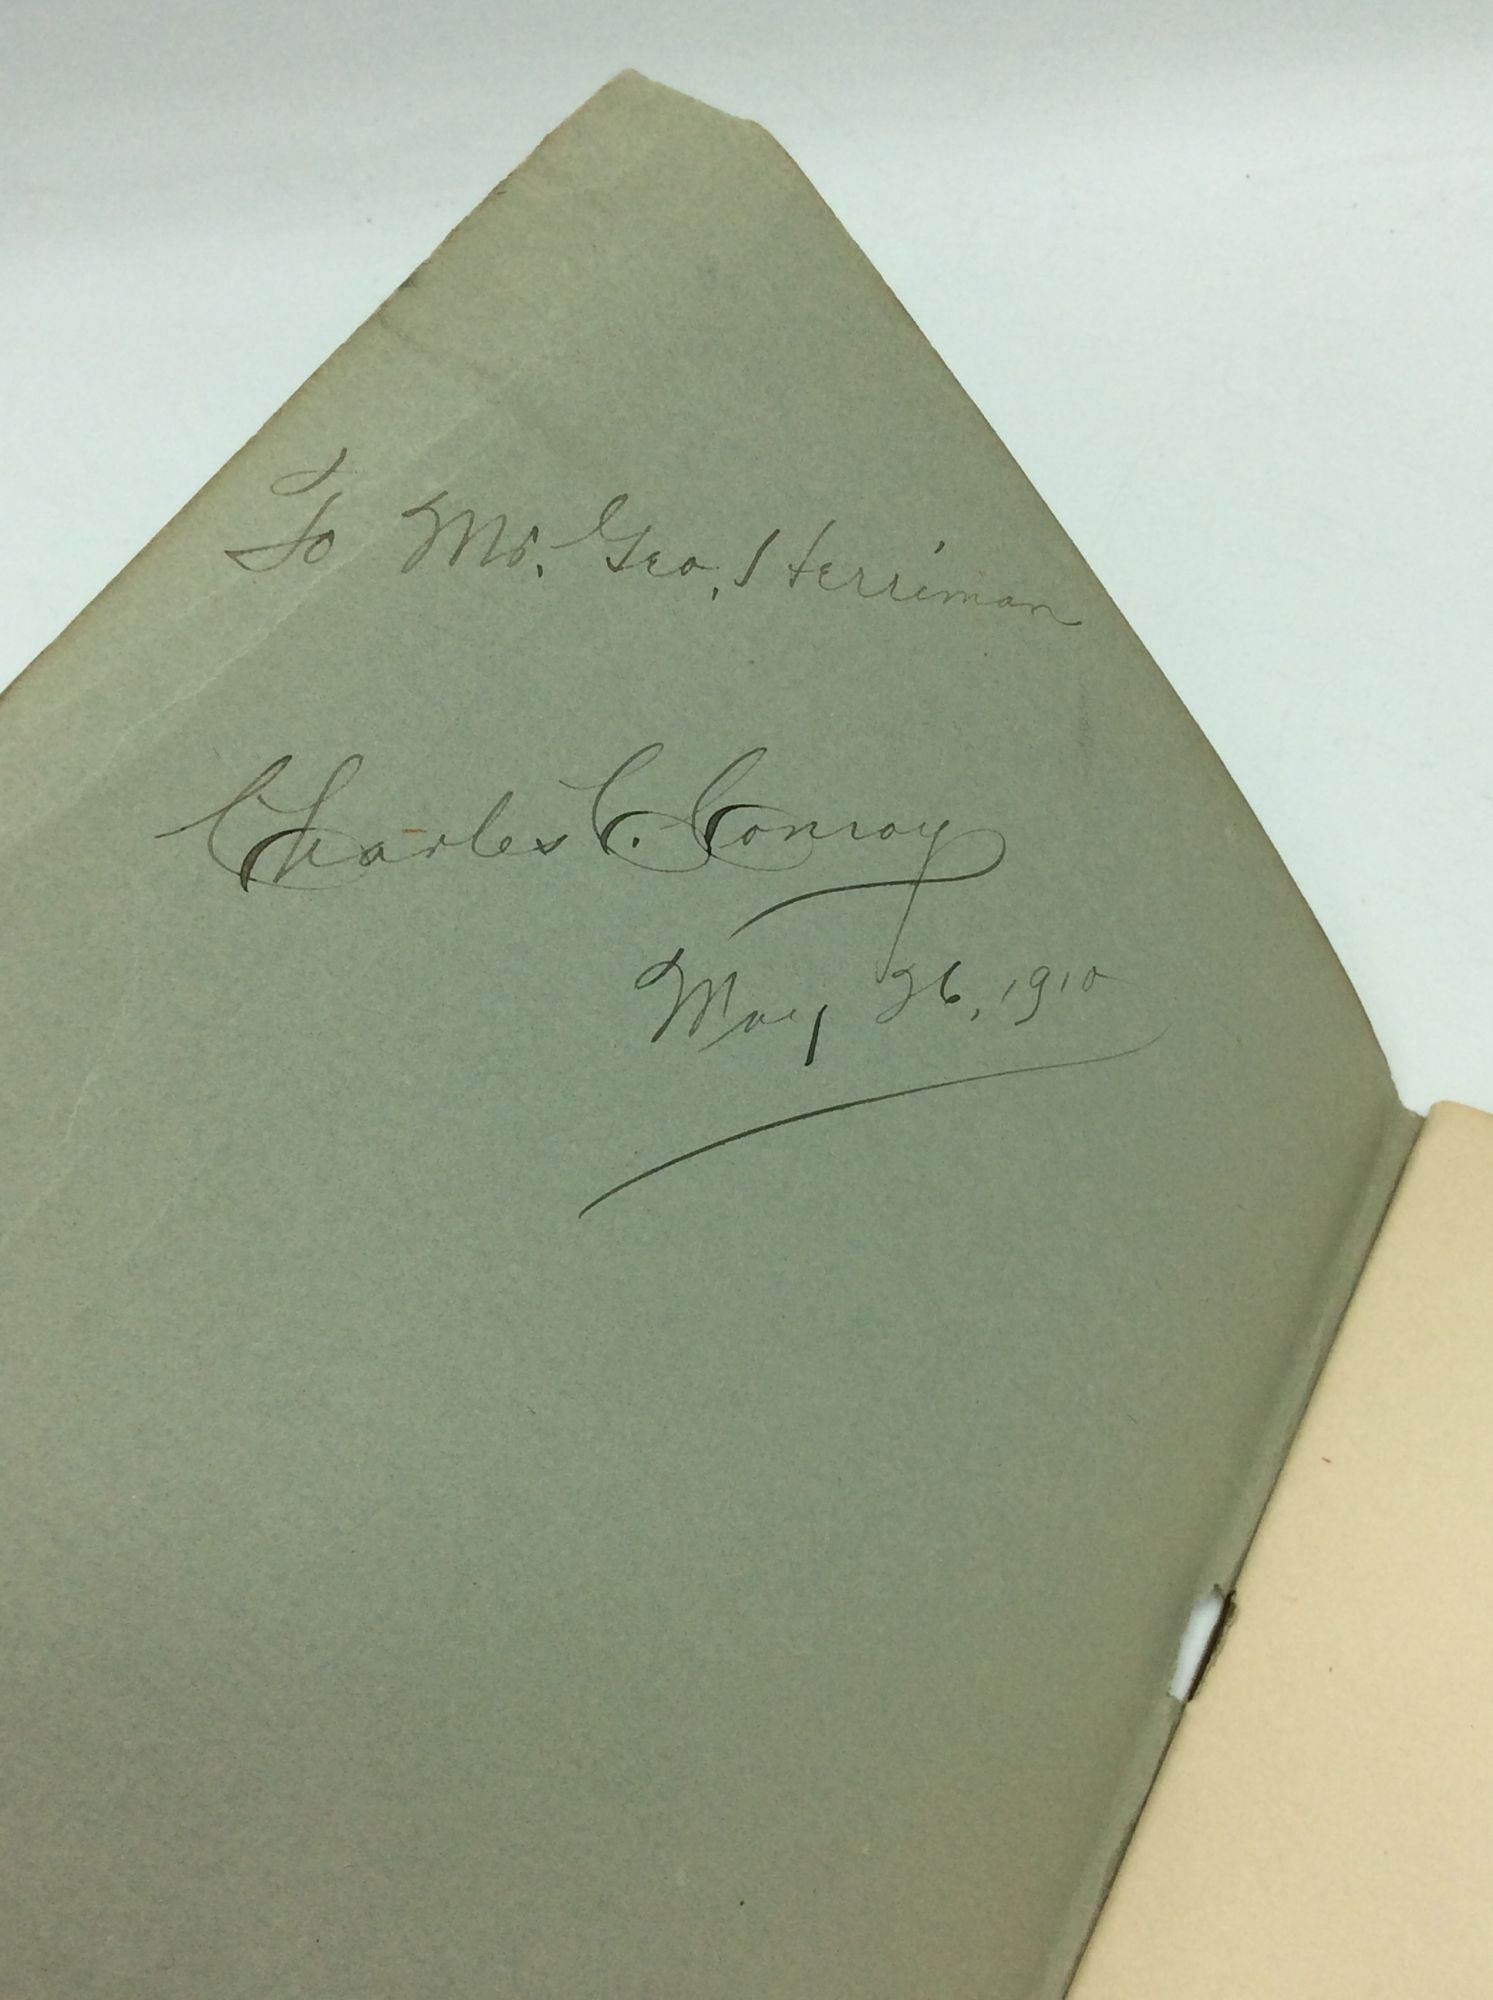 To Mr. Geo. Herriman
Charles C. Conroy
May 26, 1910